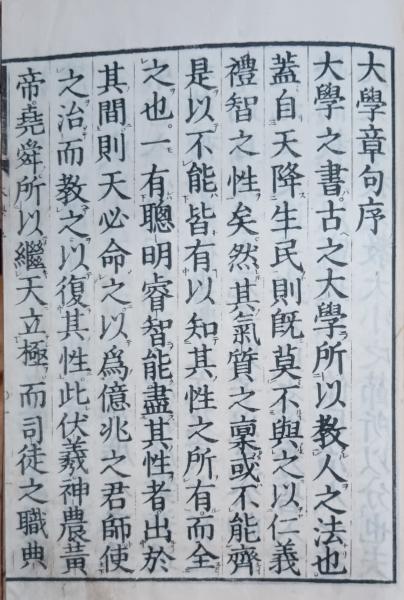 大學章句序
大學之書古之大學所以教人之法也
蓋自天降生民則旣莫不與之以仁義
禮智之性矣然其氣質之稟或不能齊
是以不能皆有以知其性之所有而全
之也一有聰明睿智能盡其性者出於
其間則天必命之以爲億兆之君師使
之治而教之以復其性此伏羲神農黃
帝堯舜所以繼天立極而司徒之職典